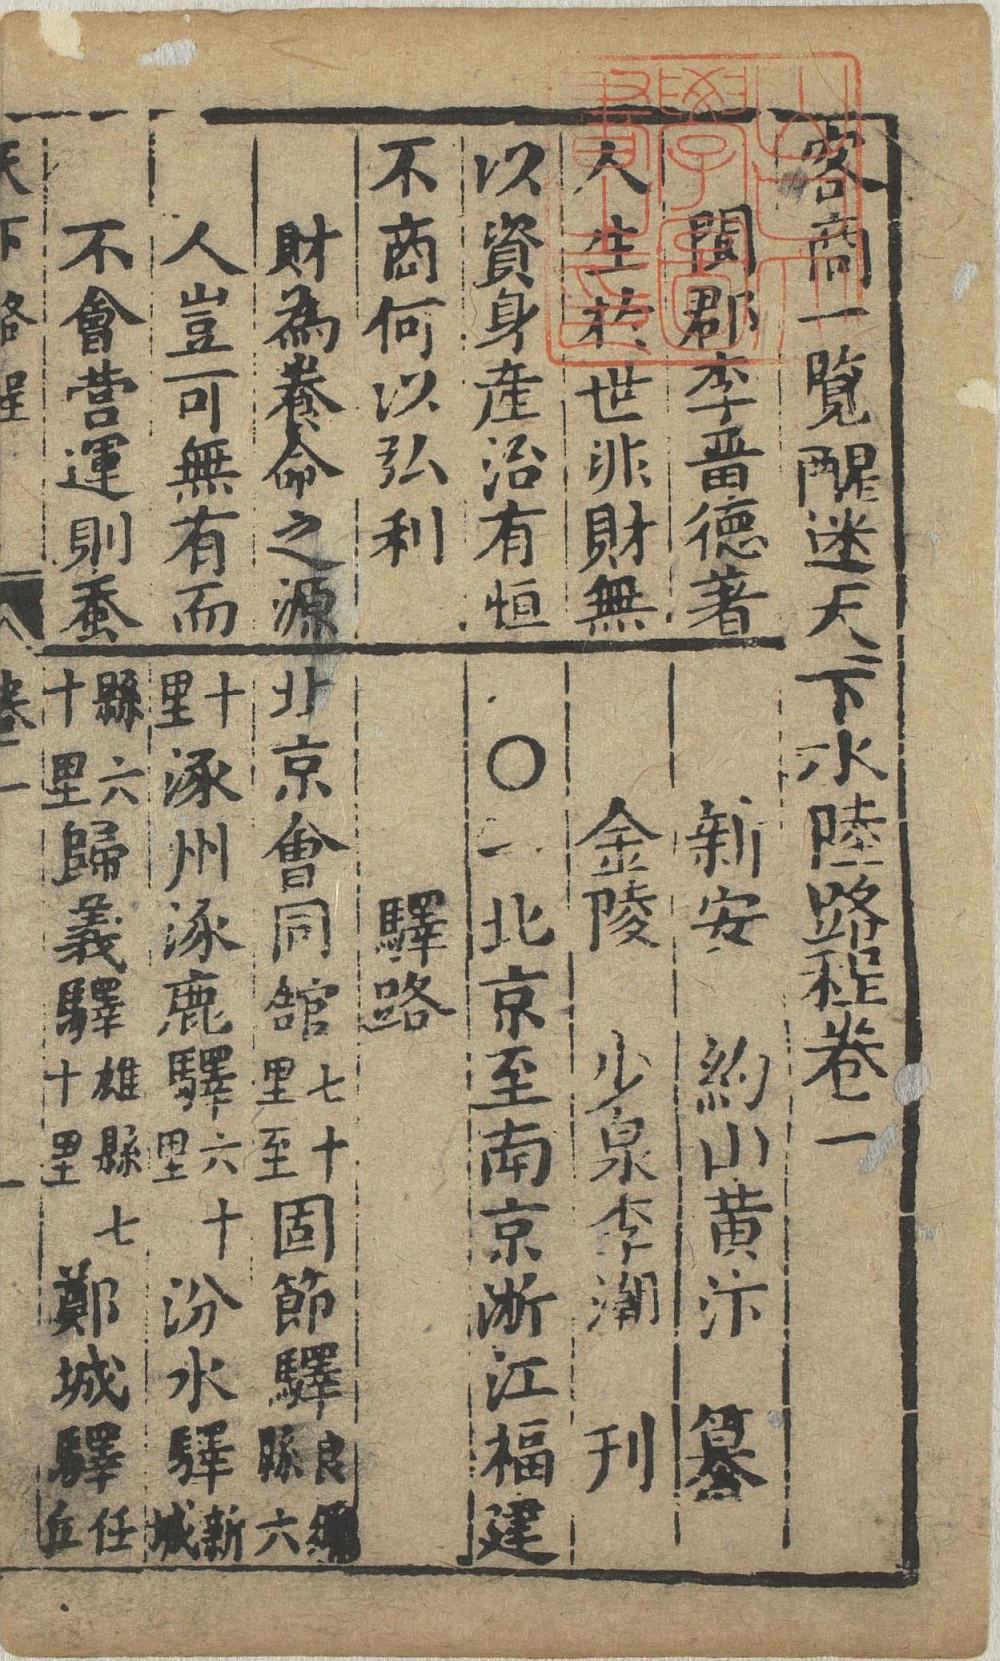 客商一覽醒迷天下水陸路程卷一
閩郡李晋德著
人生於世非財無
以資身産治有恒
不商何以弘利
財為養命之源
人豈可無有而
不會营運則蚕
新安 約山黄汴 纂
金陵 少泉李潮 刊
〇一北京至南京浙江福建
驛路
北京會同舘七十里至固節驛良鄉縣六
十里涿州涿鹿驛六十里汾水驛新城
縣六十里歸義驛雄縣七十里鄭城驛任丘
天下路程 卷一 一